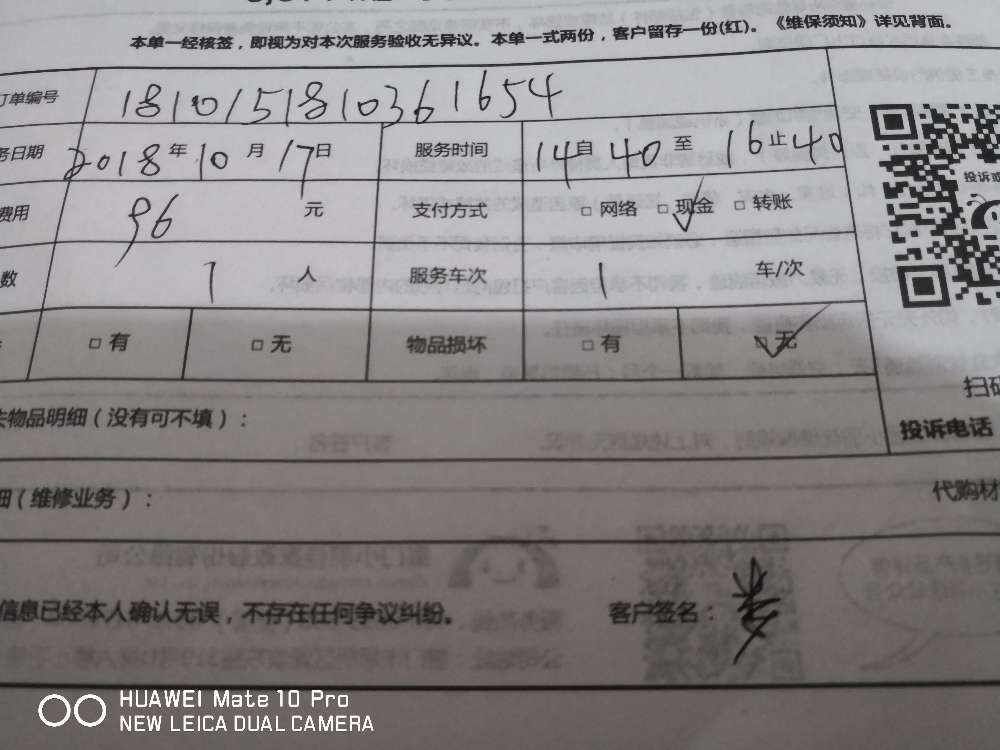 本单一经核签，即视为对本次服务验收无异议。本单一式两份，客户留存一份(红)。《维保须知》详见背面。
订单编号 1810151810361654
务日期 2018年10月17日 服务时间 14自40至16止40
费用 96 元 支付方式 □ 网络 □ 现金 □ 转账
数 1 人 服务车次 1 车/次
□ 有 □ 无 物品损坏 □ 有 □ 无
投诉或
扫码
失物品明细（没有可不填）：
投诉电话
细（维修业务）：
代购材
信息已经本人确认无误，不存在任何争议纠纷。 客户签名：
HUAWEI Mate 10 Pro
NEW LEICA DUAL CAMERA